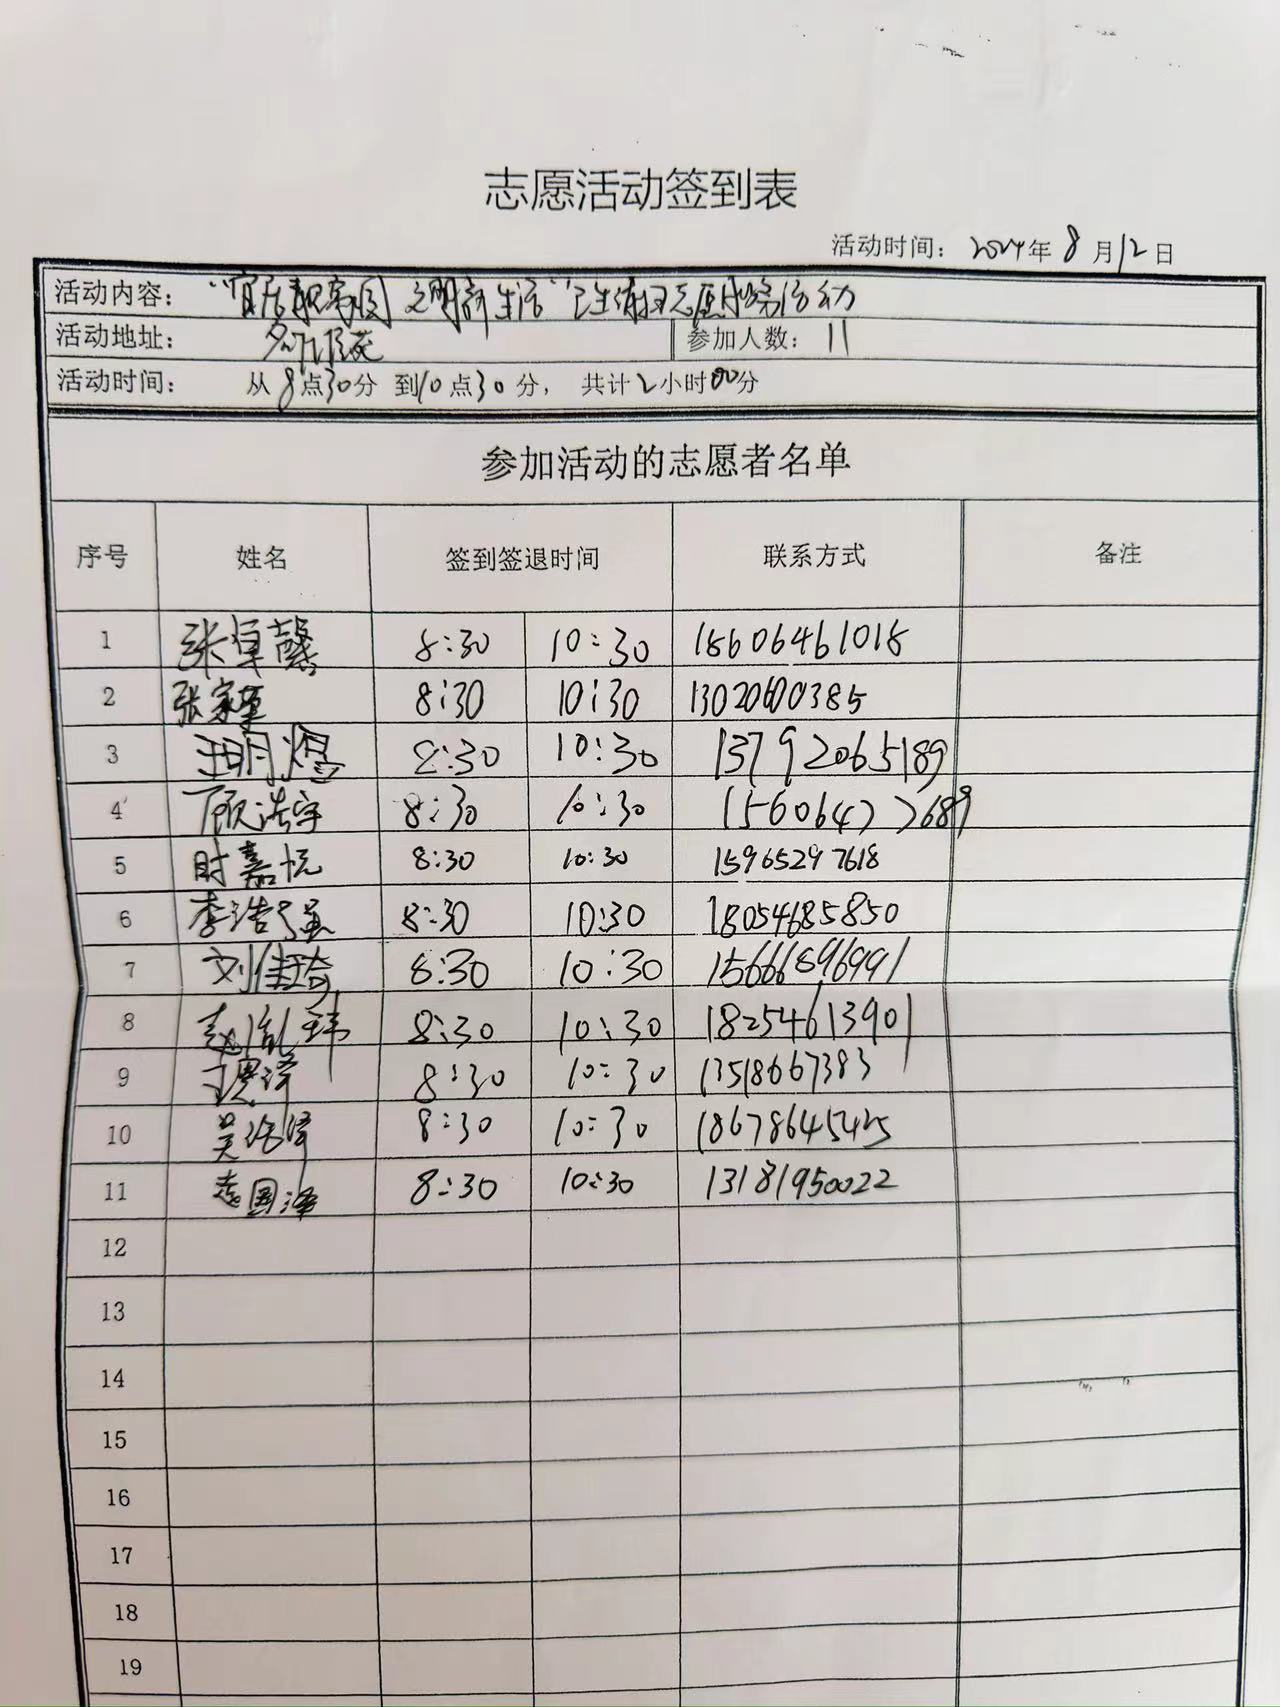 志愿活动签到表
活动时间: 2024年8月12日
活动内容: "宜居靓家园 文明新生活"卫生清扫志愿服务活动
活动地址:
参加人数: 11
活动时间: 从8点30分 到10点30分, 共计2小时00分
参加活动的志愿者名单
序号 姓名 签到签退时间 联系方式 备注
1 张卓馨 8:30 10:30 18606461018
2 张家 8:30 10:30 13020600385
3 王明煜 8:30 10:30 13792065189
4 顾浩宇 8:30 10:30 15606477689
5 时嘉悦 8:30 10:30 15965297618
6 李浩强 8:30 10:30 18054685850
7 刘佳琦 8:30 10:30 15666896991
8 赵胤玮 8:30 10:30 18254613901
9 泽 8:30 10:30 13518667383
10 吴泽 8:30 10:30 18678645425
11 国泽 8:30 10:30 13181950022
12
13
14
15
16
17
18
19